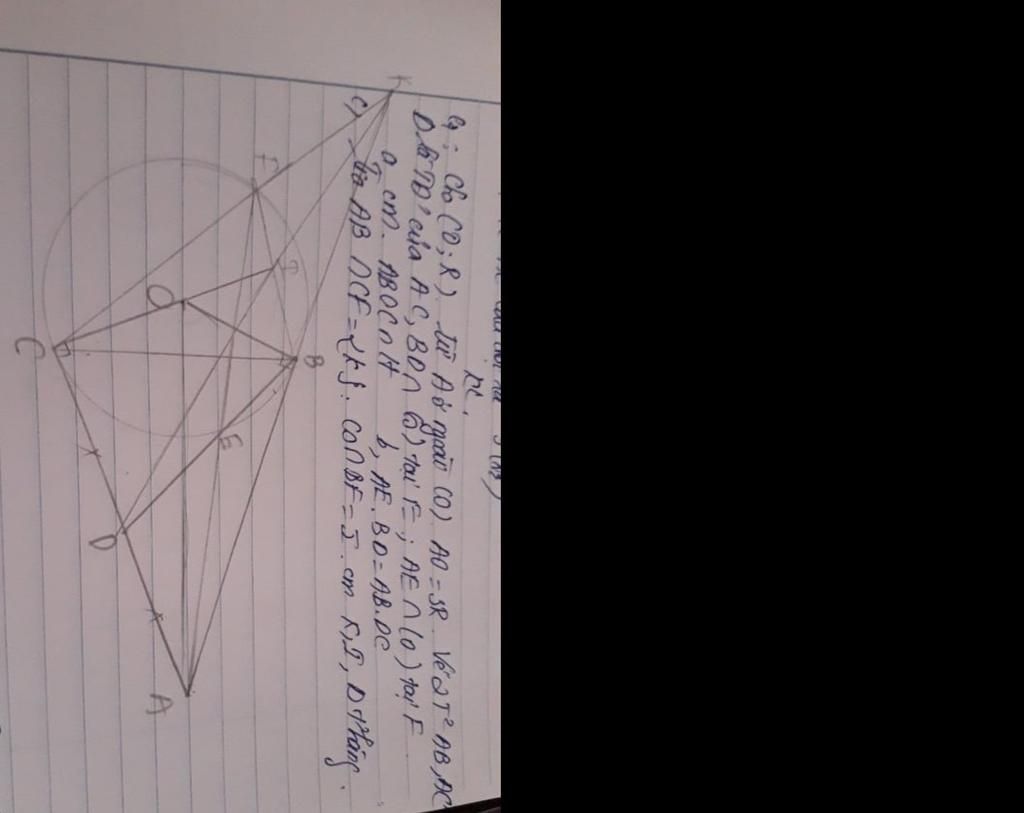 Cho (O; R). từ A ở ngoài (O) AO = 3R. Vẽ 2 T² AB, AC
D là TĐ' của AC, BD ∩ (O) tại E; AE ∩ (O) tại F
a, cm. ABOC nt b, AE.BD = AB.DC
c, AB ∩ CF = {K}. CO ∩ BF = I. cm K, I, D thẳng.
K
F
I
O
B
C
E
D
A